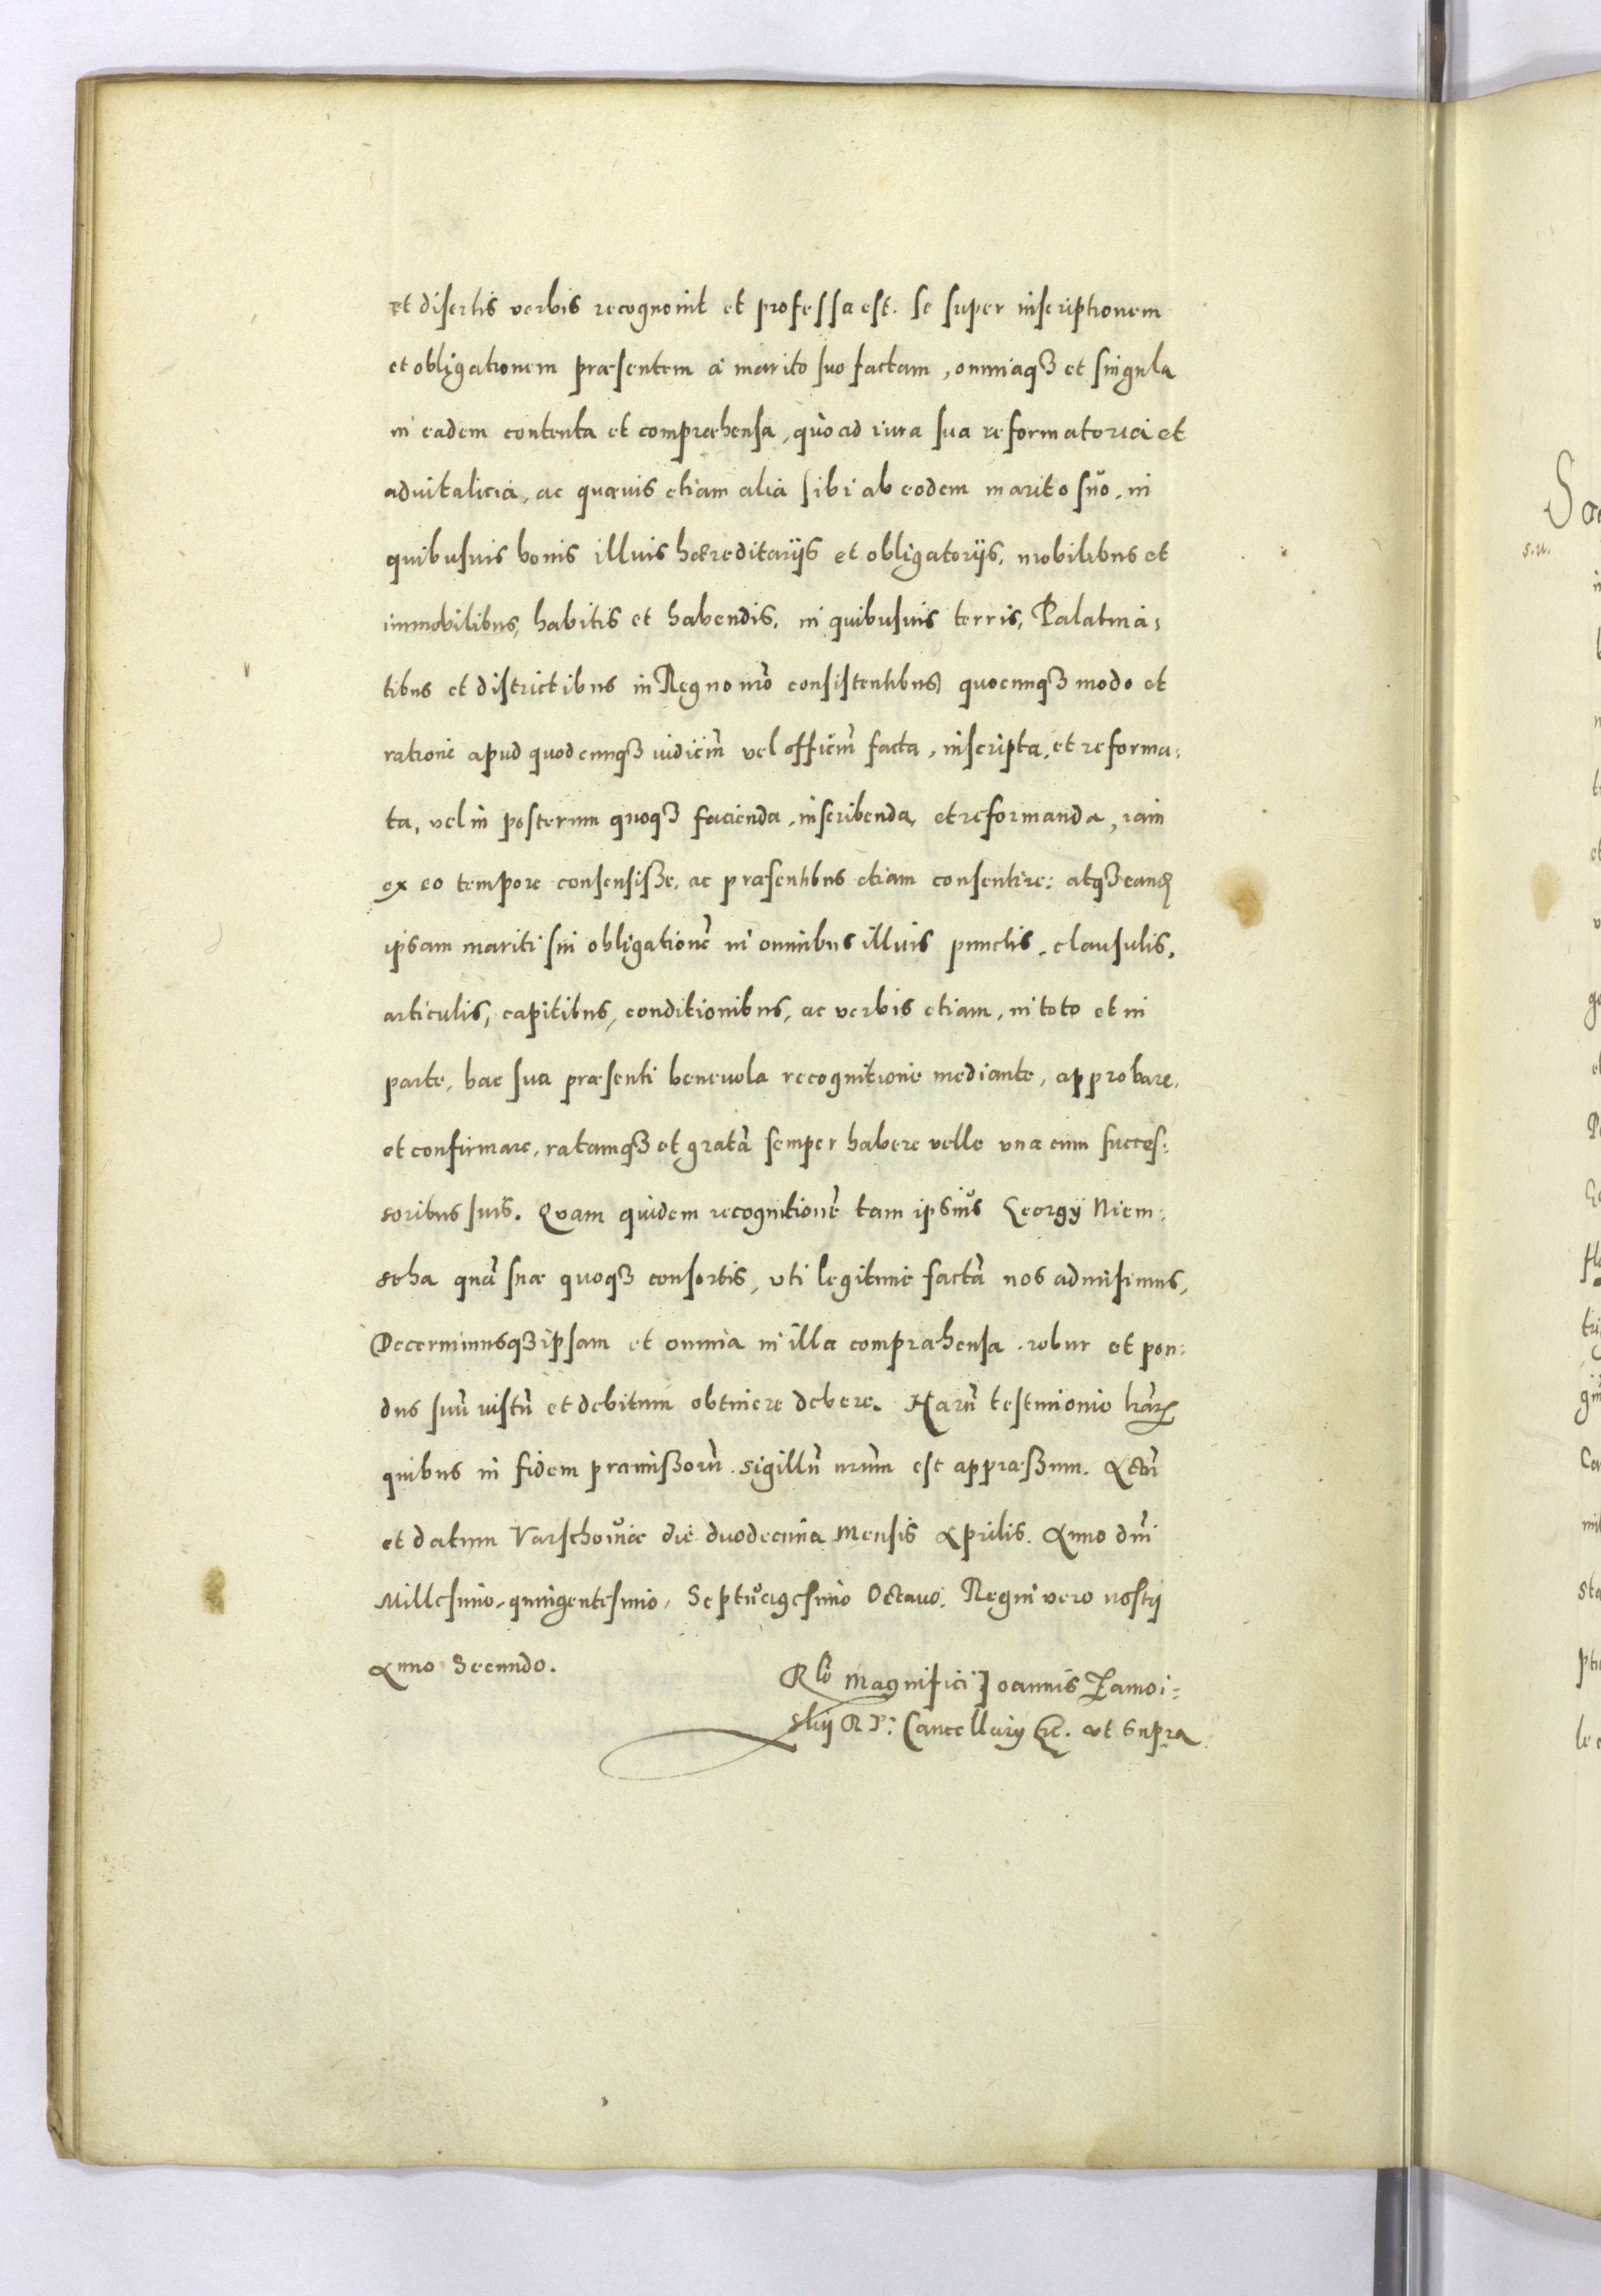 et disertis verbis recognouit et professa est. se super inscriptionem
et obligationem præsentem a marito suo factam, omniaqȝ et singula
in eadem contenta et compræhensa, quo ad iura sua reformatoria et
aduitalicia, ac quæuis etiam alia sibi ab eodem marito suo, in
quibusuis bonis illius hæreditarijs et obligatorijs, mobilibus et
immobilibus, habitis et habendis, in quibusuis terris, Palatina:
tibus et districtibus in Regno nr̃o consistentibus) quocunqȝ modo et
ratione apud quodcunqȝ iudiciũ vel officiũ facta, inscripta, et reforma:
ta, vel in posterum quoqȝ facienda, inscribenda, et reformanda, iam
ex eo tempore consensisse, ac præsentibus etiam consentire: atqȝ eand̃
ipsam mariti sui obligationẽ in omnibus illius punctis, clausulis,
articulis, capitibus, conditionibus, ac verbis etiam, in toto et in
parte, hac sua præsenti beneuola recognitione mediante, approbare,
et confirmare, ratamqȝ et gratã semper habere velle vna cum succes:
soribus suis. Quam quidem recognitionẽ tam ipsius Georgij Niem:
scha quã suæ quoqȝ consortis, vti legitime factã nos admisimus,
Decernimusqȝ ipsam et omnia in illa compræhensa, robur et pon:
dus suũ iustũ et debitum obtinere debere. Harũ testimonio lr̃arꝝ
quibus in fidem præmissorũ sigillũ nr̃um est appræssum. Actũ
et datum Varschouiæ die duodecima Mensis Aprilis. Anno dñi
Millesimo, quingentesimo, Septuagesimo Octauo. Regni vero nostri
Anno Secundo.
Rlõ Magnifici Joannis Zamoi:
skij R P: Cancellarij &c. vt supra
S
s.u.